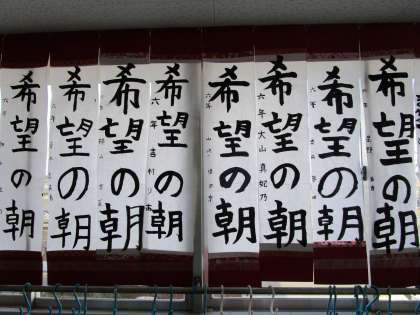 希望の朝
六年
希望の朝
六年
希望の朝
六年
希望の朝
六年 吉村 り
希望の朝
六年
希望の朝
六年 大山 真妃乃
希望の朝
六年
希望の朝